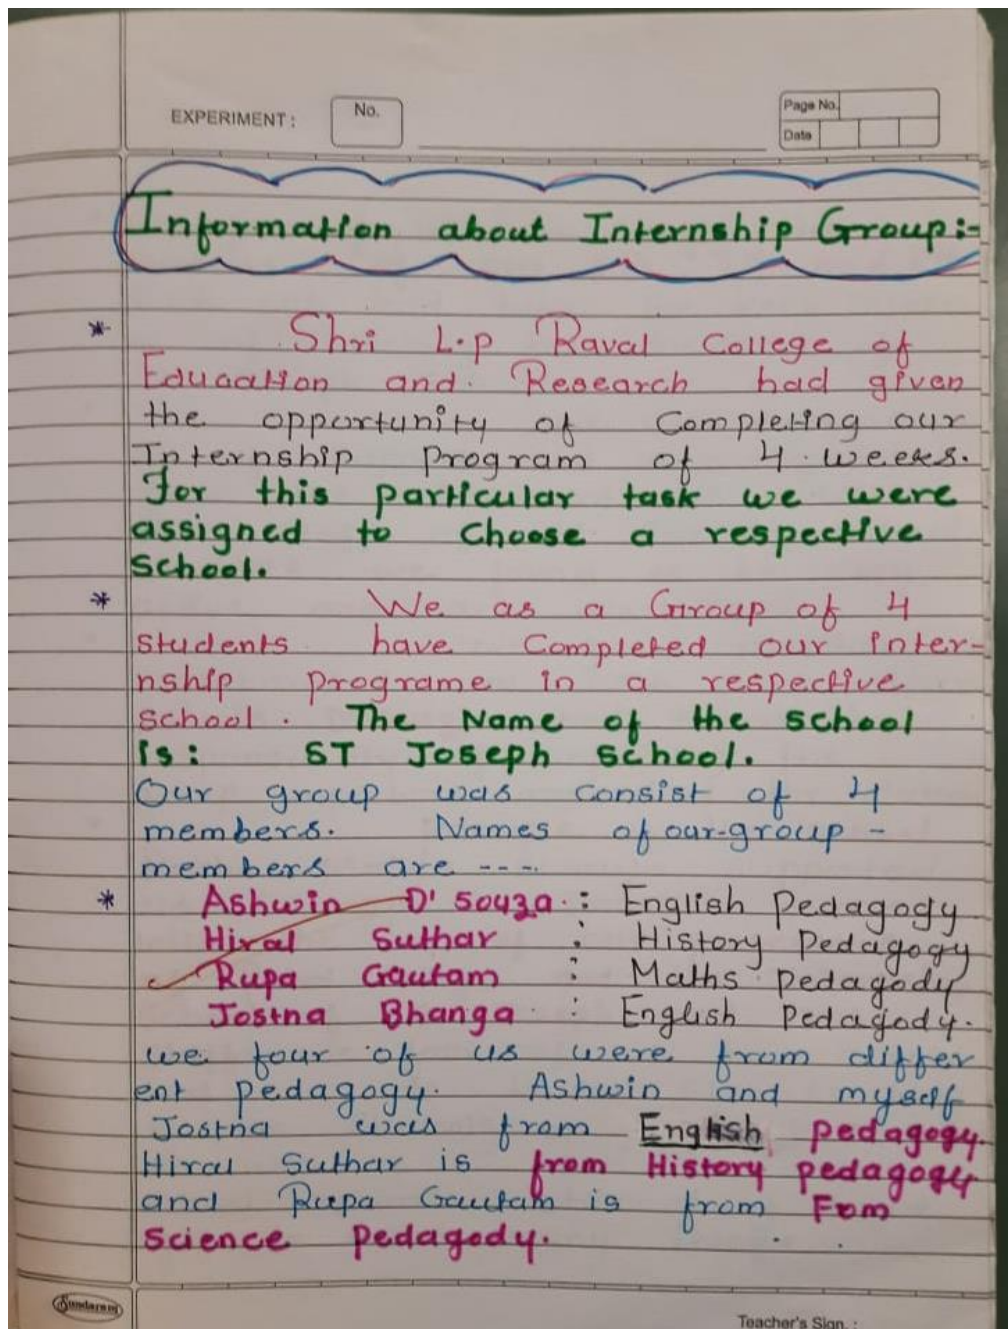 EXPERIMENT :
No.
Page No.
Date
Information about Internship Group :-
* Shri L.P Raval College of
Education and Research had given
the opportunity of Completing our
Internship program of 4 weeks.
For this particular task we were
assigned to Choose a respective
School.
* We as a Group of 4
students have Completed our inter-
nship programe in a respective
School. The Name of the school
is : ST Joseph School.
Our group was consist of 4
members. Names of our-group -
members are ----
* Ashwin D'souza : English Pedagogy
Hiral Suthar : History Pedagogy
Rupa Gautam : Maths Pedagody
Jostna Bhanga : English Pedagody.
we four of us were from differ
ent pedagogy. Ashwin and myself
Jostna was from English pedagogy
Hiral Suthar is from History pedagogy
and Rupa Gautam is from From
science pedagody.
Sundaram
Teacher's Sign. :